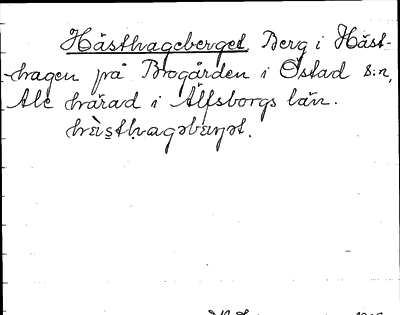 Hästhageberget. Berg i Häst-
hagen på Brogården i Östad s:n,
Ale härad i Älfsborgs län.
hæ̀sthagəbærjət.